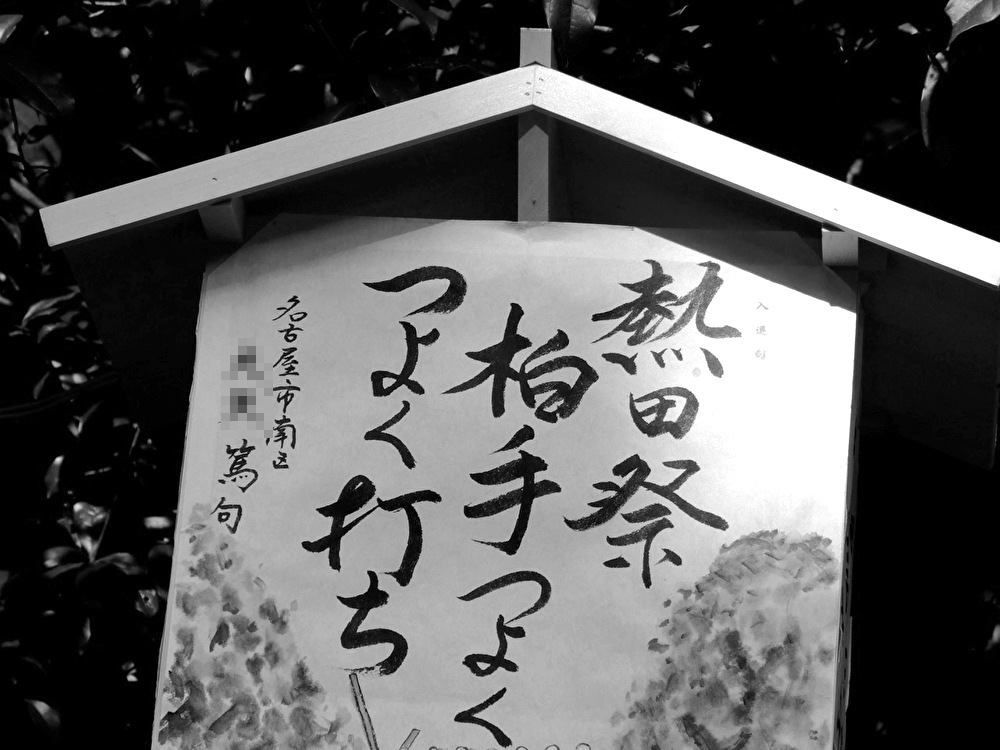 熱田祭
柏手つよく
つよく打ち
名古屋市南区
篤句